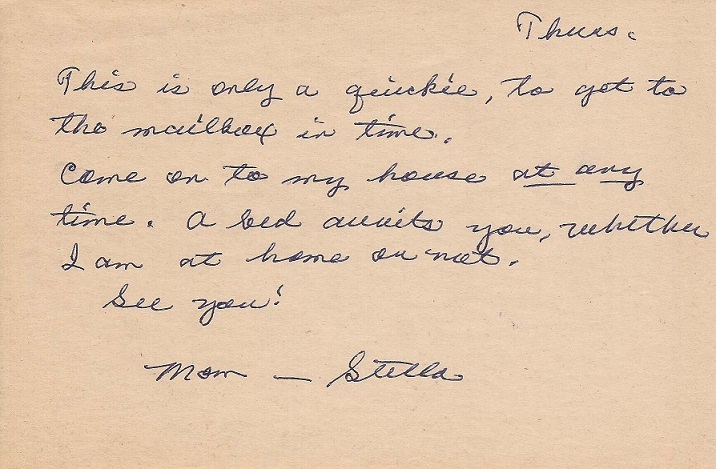 Thurs.
This is only a quickie, to get to
the mailbox in time.
Come on to my house at any
time. A bed awaits you, whether
I am at home or not.
See you!
Mom — Stella